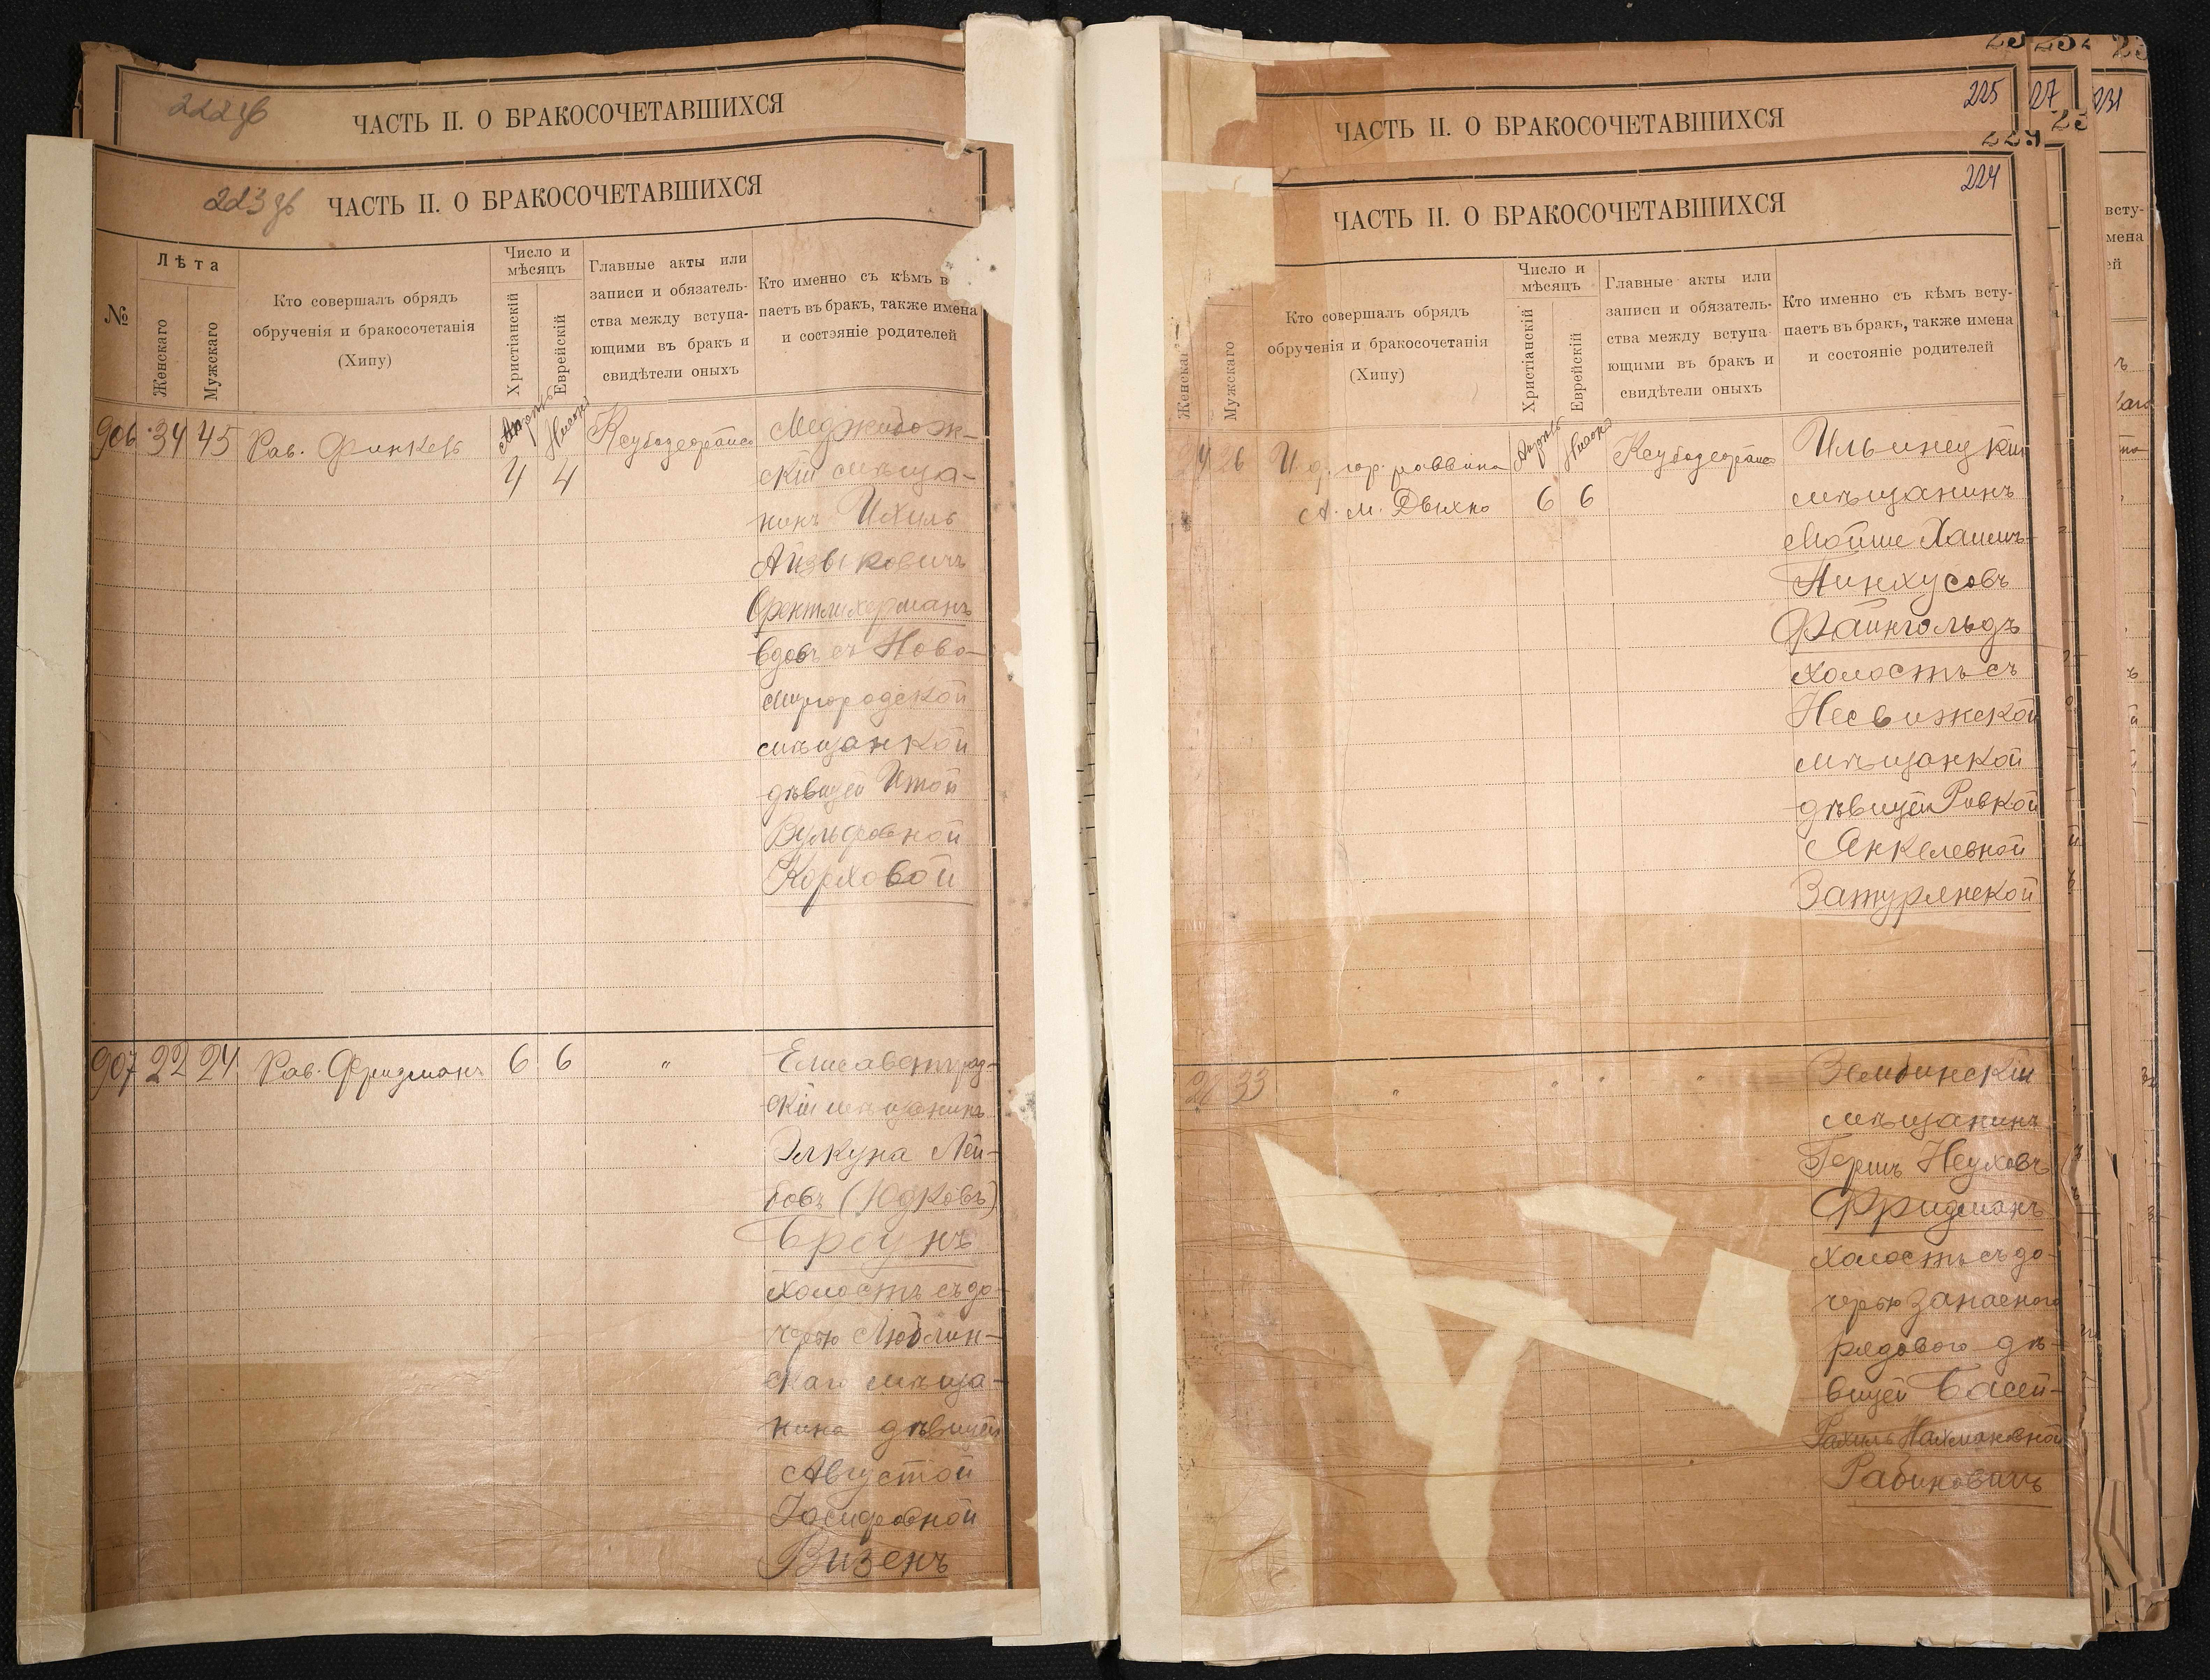 222 об
ЧАСТЬ II. О БРАКОСОЧЕТАВШИХСЯ
223 об
ЧАСТЬ II. О БРАКОСОЧЕТАВШИХСЯ
№
Лѣта
Женскаго
Мужскаго
Кто совершалъ обрядъ
обрученія и бракосочетанія
(Хипу)
Число и
мѣсяцъ
Христіанскій
Еврейскій
Главные акты или
записи и обязатель-
ства между вступа-
ющими въ бракъ и
свидѣтели оныхъ
Кто именно съ кѣмъ в
паетъ въ бракъ, также имена
и состояніе родителей
906 34 45 Рав. Финкель
Апрѣль
4
Нисонъ
4
Меджибож-
скій мѣща-
нинъ Ихиль
Айзыковичъ
Орентлихерманъ
вдовъ съ Ново-
миргородской
мѣщанкой
дѣвицей Итой
Вульфовной
Корховой
907 22 24 Рав. Фридманъ 6 6 "
Елисаветград-
скій мѣщанинъ
Элкуна Лей-
бовъ (Юдковъ)
Бреунъ
холостъ съ до-
черью Люблин-
скаго мѣща-
нина дѣвицей
Августой
Іосифовной
Визенъ
225
27
231
ЧАСТЬ II. О БРАКОСОЧЕТАВШИХСЯ
229
224
ЧАСТЬ II. О БРАКОСОЧЕТАВШИХСЯ
Женска
Мужскаго
Кто совершалъ обрядъ
обрученія и бракосочетанія
(Хипу)
Число и
мѣсяцъ
Христіанскій
Еврейскій
Главные акты или
записи и обязатель-
ства между вступа-
ющими въ бракъ и
свидѣтели оныхъ
Кто именно съ кѣмъ всту-
паетъ въ бракъ, также имена
и состояніе родителей
всту-
мена
ей
24 26 И. д. гор. раввина
А. М. Дыхно
Апрѣль
6
Нисонъ
6
Ильинецкій
мѣщанинъ
Мойше Хаимъ-
Пинхусовъ
Файнгольдъ
холостъ съ
Несвижской
мѣщанкой
дѣвицей Ривкой
Янкелевной
Затурянской
33 " " " "
Зембинскій
мѣщанинъ
Гершъ Неуховъ
Фридманъ
холостъ съ до-
черью запасного
рядового дѣ-
вицей Басей-
Рахиль Нахмановной
Рабиновичъ